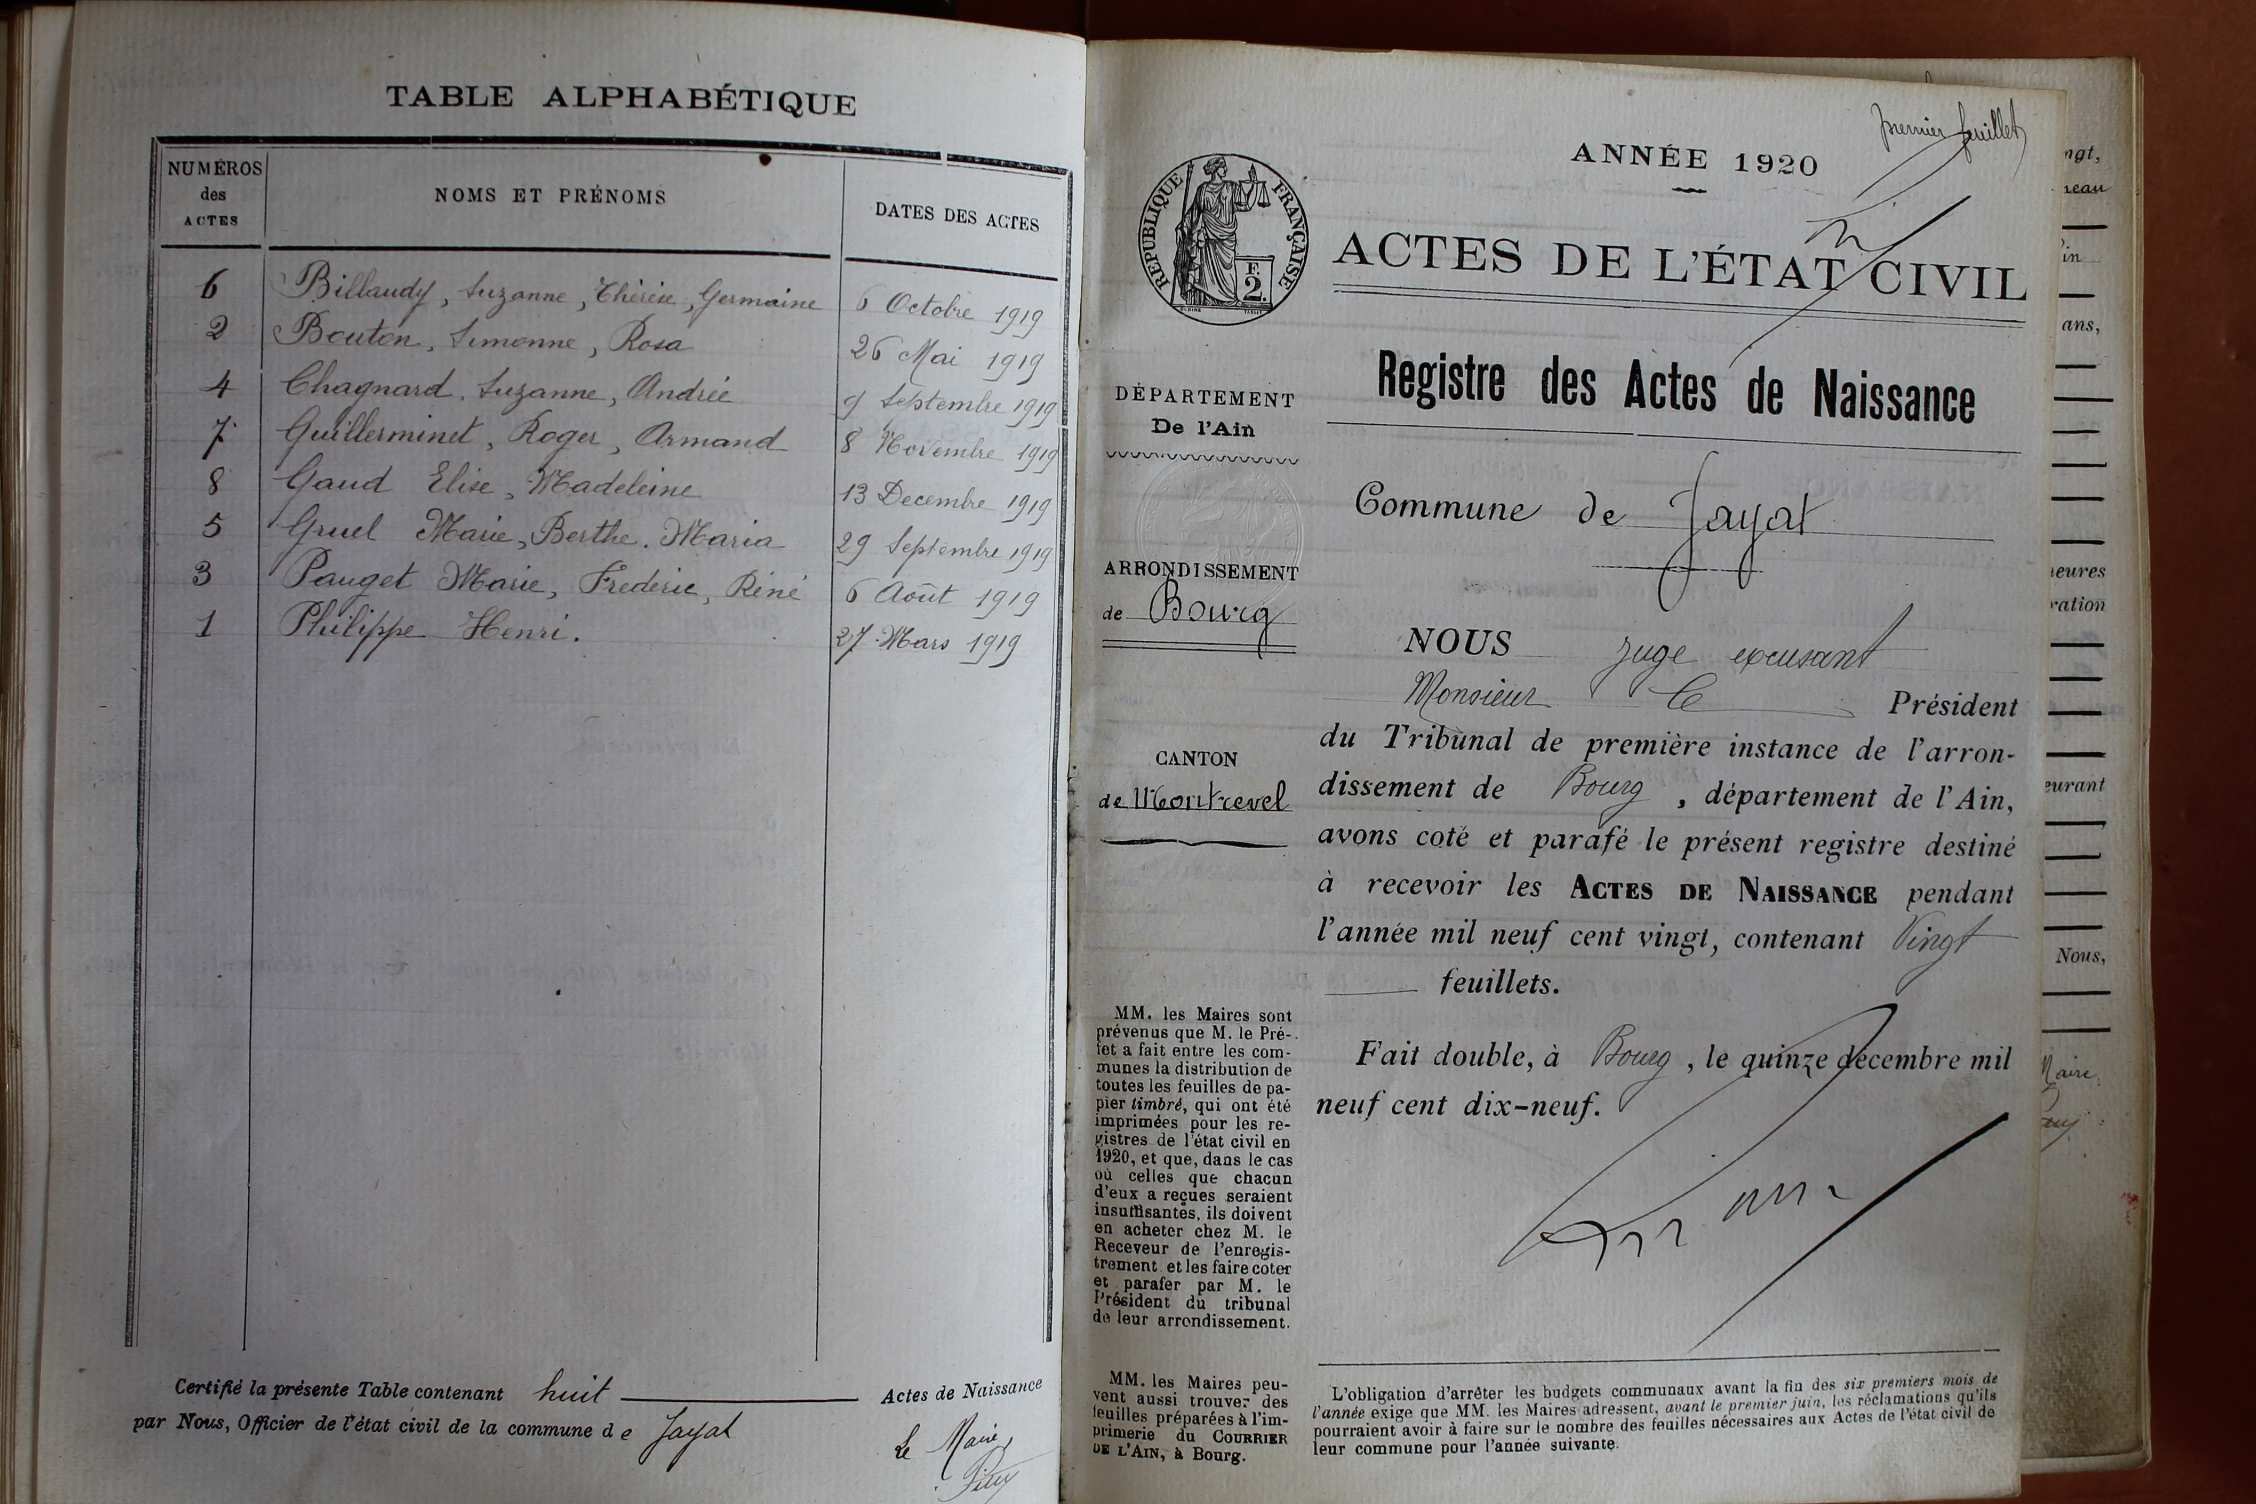 TABLE ALPHABÉTIQUE
NUMÉROS des ACTES
NOMS ET PRÉNOMS
DATES DES ACTES
6 Billaudy, Suzanne, Thérèse, Germaine 6 Octobre 1919
2 Bouton, Simonne, Rosa 26 Mai 1919
4 Chagnard, Suzanne, Andrée 9 Septembre 1919
7 Guillerminet, Roger, Armand 8 Novembre 1919
8 Gaud Elise, Madeleine 13 Decembre 1919
5 Gruel Marie, Berthe, Maria 29 Septembre 1919
3 Pauget Marie, Frederic, Réné 6 Août 1919
1 Philippe Henri. 27 Mars 1919
Certifié la présente Table contenant huit Actes de Naissance
par Nous, Officier de l'état civil de la commune de Jayat
Le Maire,
premier feuillet
ANNÉE 1920
RÉPUBLIQUE FRANÇAISE
F.
2.
ACTES DE L'ÉTAT CIVIL
Registre des Actes de Naissance
DÉPARTEMENT
De l'Ain
Commune de Jayat
ARRONDISSEMENT
de Bourg
CANTON
de Montrevel
NOUS juge excusant
Monsieur Le Président
du Tribunal de première instance de l'arron-
dissement de Bourg, département de l'Ain,
avons coté et parafé le présent registre destiné
à recevoir les ACTES DE NAISSANCE pendant
l'année mil neuf cent vingt, contenant Vingt
feuillets.
Fait double, à Bourg, le quinze décembre mil
neuf cent dix-neuf.
MM. les Maires sont
prévenus que M. le Pré-
fet a fait entre les com-
munes la distribution de
toutes les feuilles de pa-
pier timbré, qui ont été
imprimées pour les re-
gistres de l'état civil en
1920, et que, dans le cas
où celles que chacun
d'eux a reçues seraient
insuffisantes, ils doivent
en acheter chez M. le
Receveur de l'enregis-
trement et les faire coter
et parafer par M. le
Président du tribunal
de leur arrondissement.
MM. les Maires peu-
vent aussi trouver des
feuilles préparées à l'im-
primerie du COURRIER
DE L'AIN, à Bourg.
L'obligation d'arrêter les budgets communaux avant la fin des six premiers mois de
l'année exige que MM. les Maires adressent, avant le premier juin, les réclamations qu'ils
pourraient avoir à faire sur le nombre des feuilles nécessaires aux Actes de l'état civil de
leur commune pour l'année suivante.
ngt,
neau
in
ans,
eures
ration
eurant
Nous,
Maire